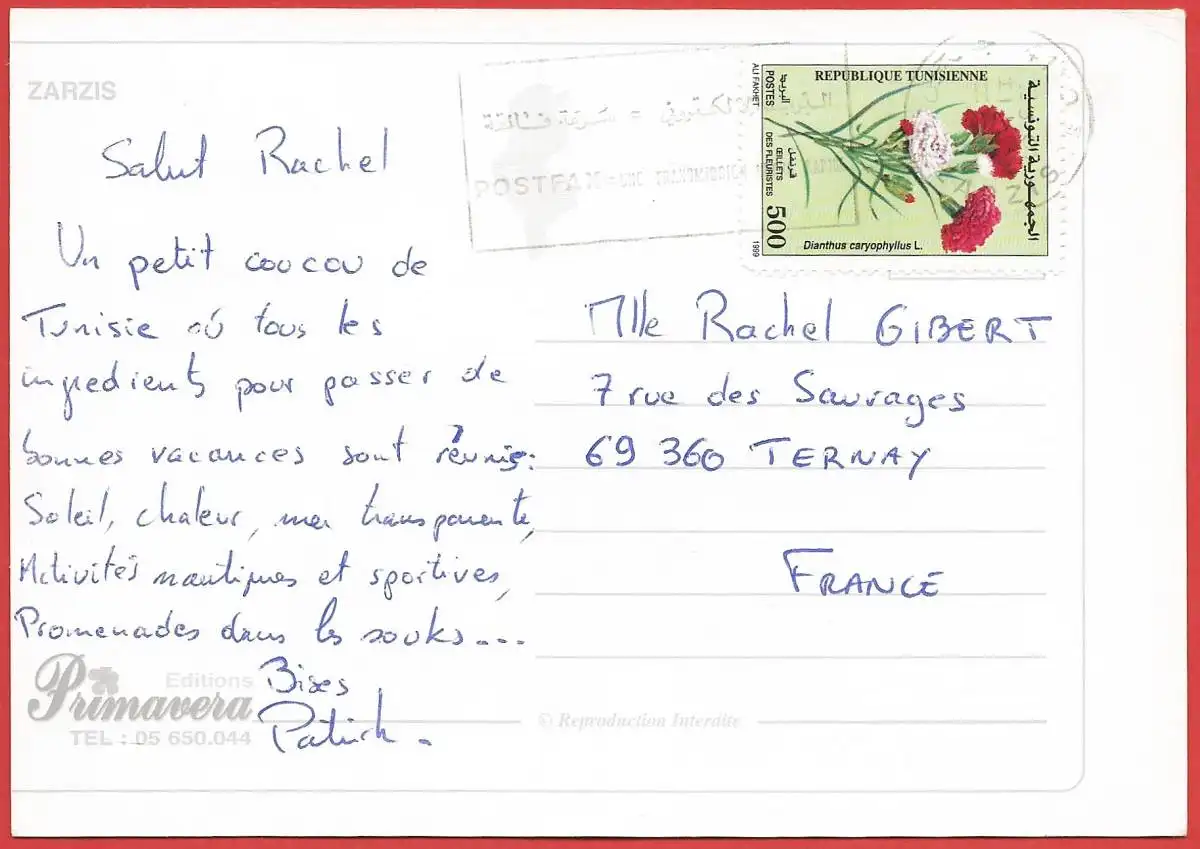 ZARZIS
Salut Rachel
Un petit coucou de
Tunisie où tous les
ingrédients pour passer de
bonnes vacances sont réunis:
Soleil, chaleur, mer transparente,
Activités nautiques et sportives,
Promenades dans les souks...
Bises
Patrick.
Editions
Primavera
TEL : 05 650.044
© Reproduction Interdite
البريد الالكتروني = سرعة فائقة
POSTFAX = UNE TRANSMISSION
REPUBLIQUE TUNISIENNE
الجمهورية التونسية
ALI FAKHET
POSTES البريد
ŒILLETS
DES FLEURISTES
قرنفل
500
1999
Dianthus caryophyllus L.
Mlle Rachel GIBERT
7 rue des Sauvages
69 360 TERNAY
FRANCE